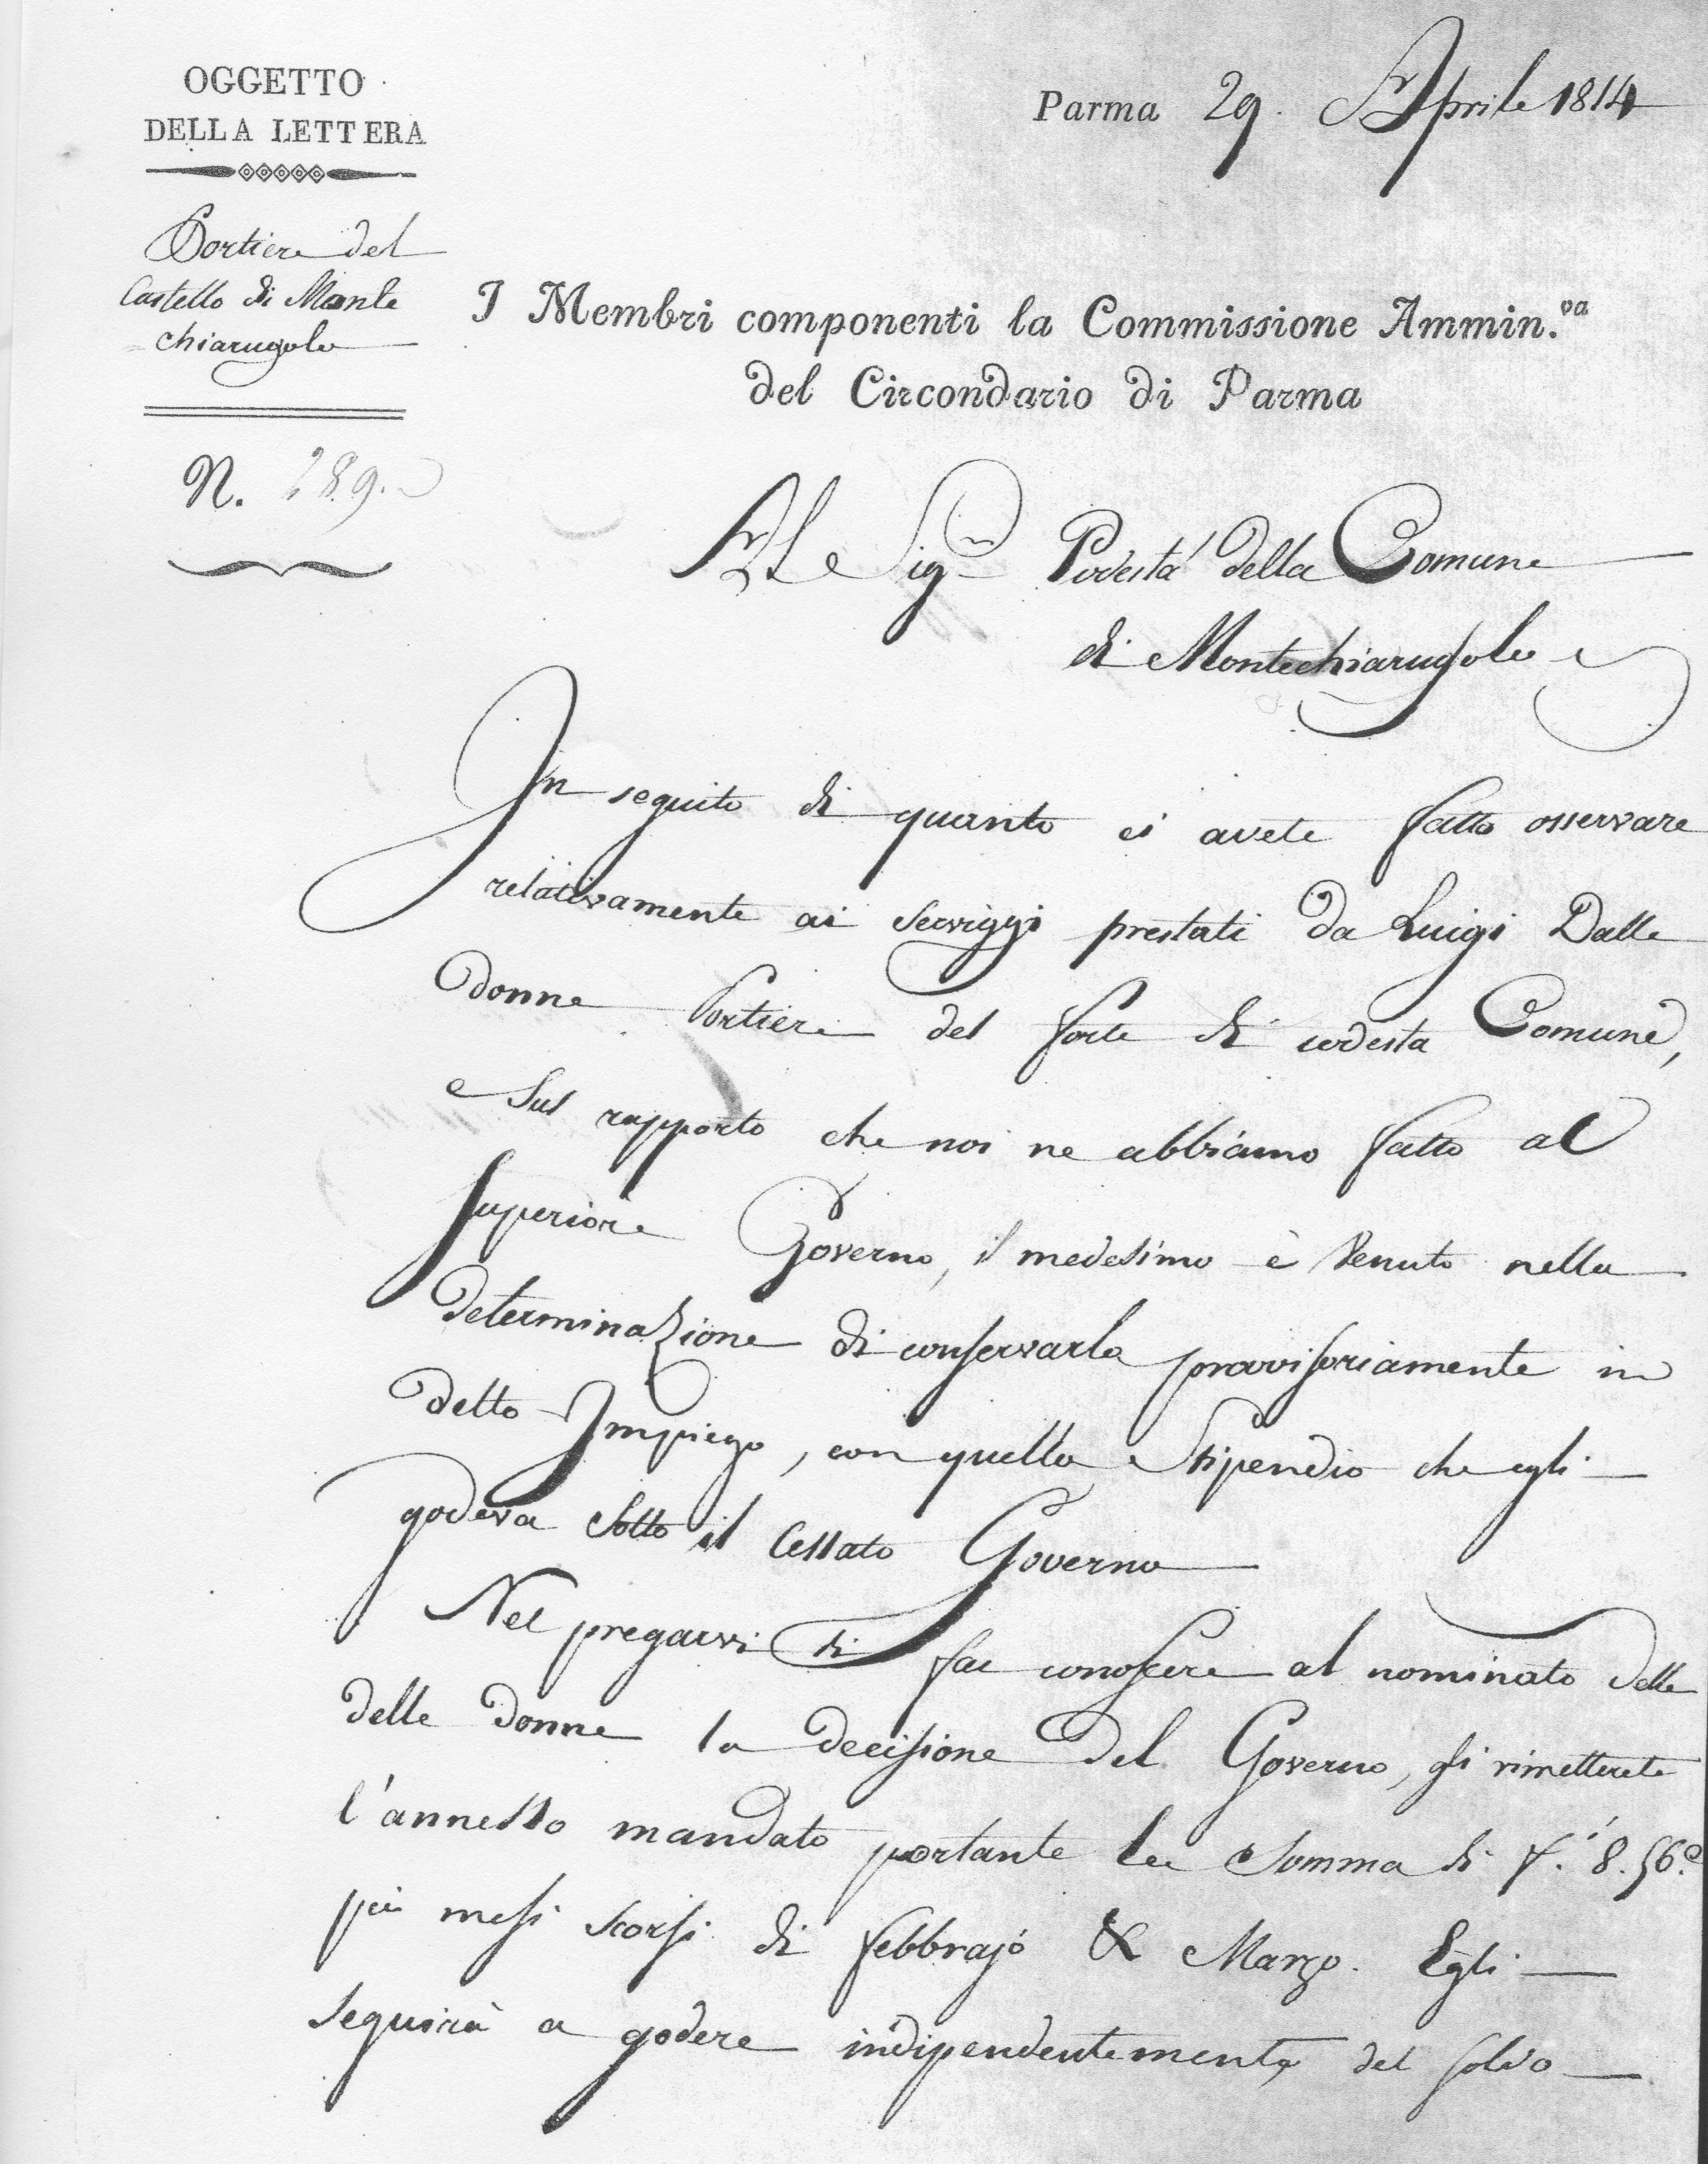 OGGETTO
DELLA LETTERA
Portiere del
Castello di Monte
chiarugolo
N. 289.
Parma 29. Aprile 1814
I Membri componenti la Commissione Ammin.va
del Circondario di Parma
Al Sigr Podestá della Comune
di Montechiarugolo
In seguito di quanto ci avete fatto osservare
relativamente ai Serviggi prestati da Luigi Dalle
donne Portiere del forte di codesta Comune,
e Sul rapporto che noi ne abbiamo fatto al
Superiore Governo, il medesimo è Venuto nella
determinazione di conservarlo provvisoriamente in
detto Impiego, con quello Stipendio che egli
godeva Sotto il Cessato Governo
Nel pregarvi di far conoscere al nominato Delle
delle donne la decisione del Governo, gli rimetterete
l'annesso mandato portante la Somma di f. 8. 56.c
pei mesi scorsi di febbrajo & Marzo. Egli
seguirà a godere indipendentemente del soldo